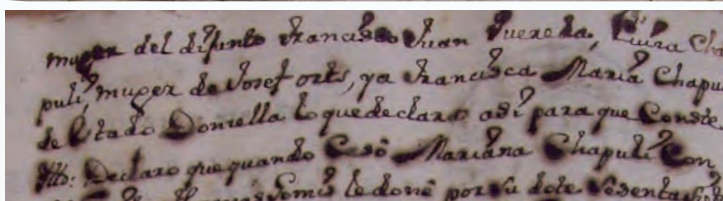 muger del difunto Francisco Juan Puereta, Luisa Cha
puli, muger de Josef orts, ya Francisca Maria Chapu
de Estado Donsella lo que declaro asi para que Conste
Itt: Declaro que quando Casó Mariana Chapuli Con
le doné por su dote Sesenta